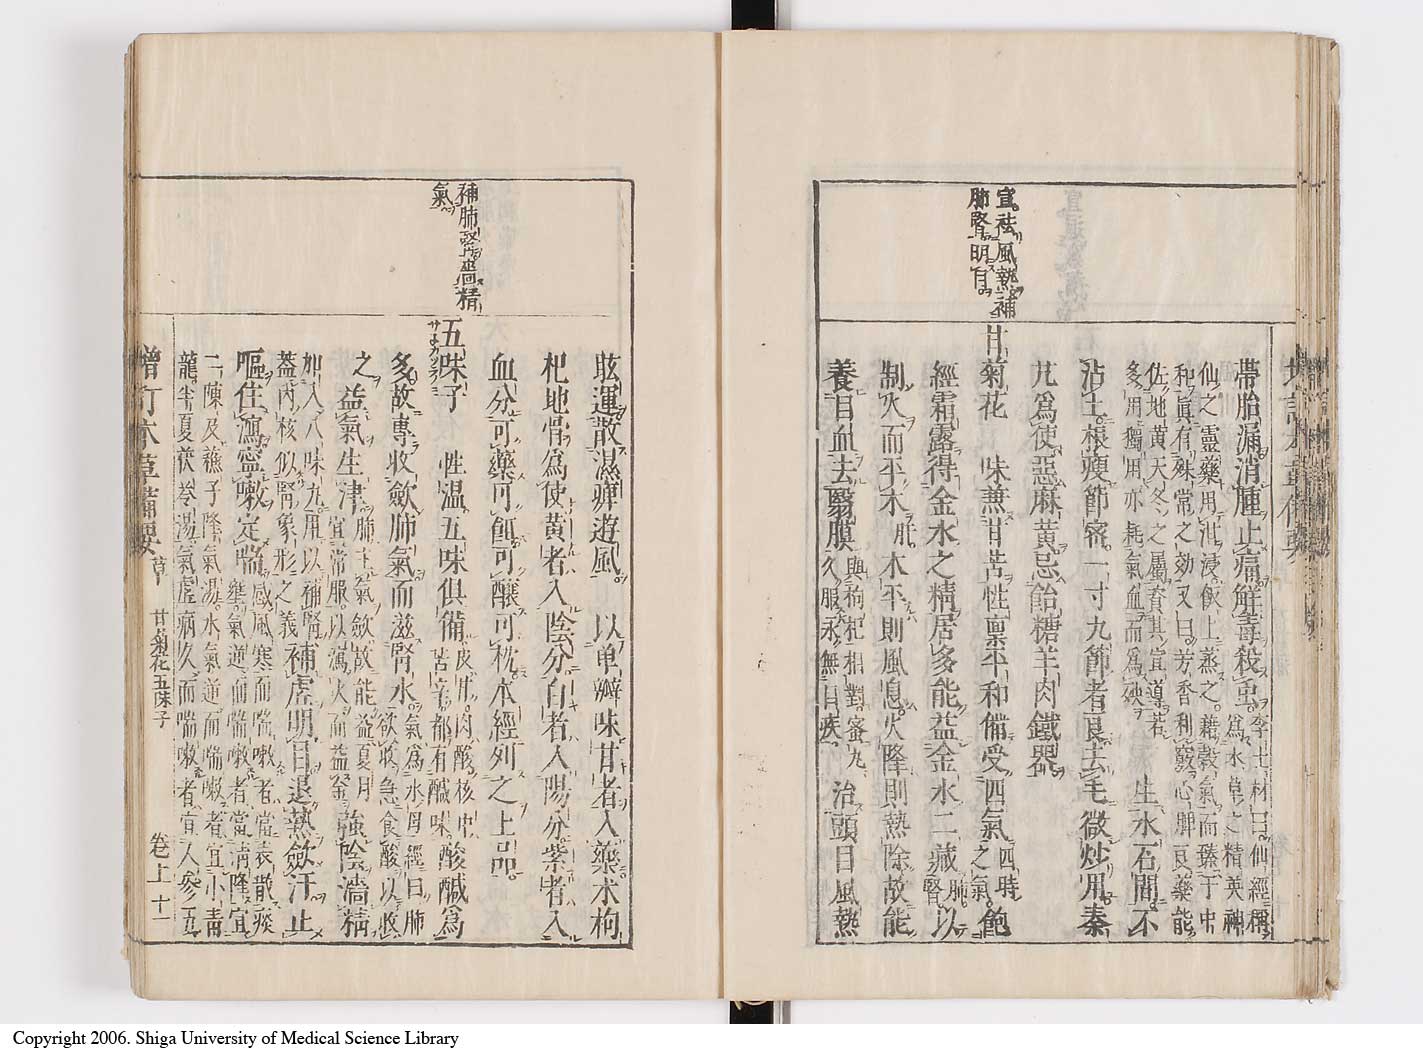 宜袪風熱補
肺腎明目
帶胎漏消腫止痛解毒殺蟲 李士材曰仙經稱爲水草之精英神
仙之靈藥用泔浸飯上蒸之藉穀氣而臻于中
和眞有殊常之効又曰芳香利竅心脾良藥能
佐地黃天冬之屬資其宜導若
多用獨用亦耗氣血而爲殃 生水石間不
沾土根瘦節密一寸九節者良去毛微炒用秦
艽爲使惡麻黃忌飴糖羊肉鐵器
甘菊花 味兼甘苦性稟平和備受四氣 四時之氣 飽
經霜露得金水之精居多能益金水二藏 肺腎 以
制火而平木 肝 木平則風息火降則熱除故能
養目血去翳膜 與枸杞相對蜜丸久服永無目疾 治頭目風熱
補肺腎濇精
氣
眩運散濕痺遊風 以单瓣味甘者入藥朮枸
杞地骨爲使黃者入陰分白者入陽分紫者入
血分可藥可餌可釀可枕本經列之上品
五味子 性溫五味俱備 皮甘肉酸核中苦辛都有鹹味 酸鹹爲
多故專收歛肺氣而滋腎水 氣爲水母經曰肺欲收急食酸以收
之 益氣生津 肺主氣歛故能益夏月宜常服以瀉火而益金 強陰濇精
加入八味丸用以補腎
葢內核似腎象形之義 補虛明目退熱歛汗止
嘔住瀉寧嗽定喘 感風寒而喘嗽者當表散痰壅氣逆而喘嗽者當淸降宜
二陳及蘓子降氣湯水氣逆而喘嗽者宜小靑
龍半夏茯苓湯氣虛病久而喘嗽者宜人參五
增訂本草備要 草 甘菊花五味子 卷上 十一